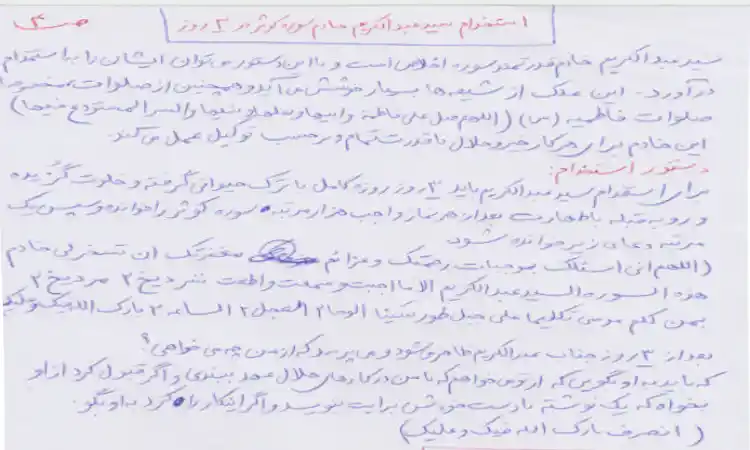 استخدام سید عبدالکریم خادم سوره کوثر در ۳ روز
ص
سید عبدالکریم خادم قدرتمند سوره اخلاص است و با این دستور می توان ایشان را به استخدام
درآورد. این ملک از شیعه ها بسیار خوشش می آید و همچنین از صلوات مخصوصا
صلوات فاطمیه (س) (اللهم صل علی فاطمة و ابیها و بعلها و بنیها والسر المستودع فیها)
این خادم برای هر کار خیر و حلال با قدرت تمام و بر حسب توکیل عمل می کند.
دستور استخدام:
برای استخدام سید عبدالکریم باید ۳ روز روزه کامل با ترک حیوانی گرفته و خلوت گزیده
و رو به قبله با طهارت بعد از هر نماز واجب هزار مرتبه سوره کوثر را خوانده و سپس یک
مرتبه دعای زیر خوانده شود
(اللهم انی اسئلک بموجبات رحمتک و عزائم مغفرتک ان تسخر لی خادم
هذه السوره السید عبدالکریم الا ما اجبت و سمعت و اطعت
بمن کلم موسی تکلیما علی جبل طور سینا الوحا ۲ العجل ۲ الساعه ۲ بارک الله فیک و علیک
بعد از ۳ روز جناب عبدالکریم ظاهر می شود و می پرسد که از من چه می خواهی؟
که باید به او بگویی که از تو می خواهم که با من در کارهای حلال عهد ببندی و اگر قبول کرد از او
بخواه که یک نوشته با دست خودش برایت بنویسد و اگر اینکار را کرد به او بگو.
(انصرف بارک الله فیک و علیک)